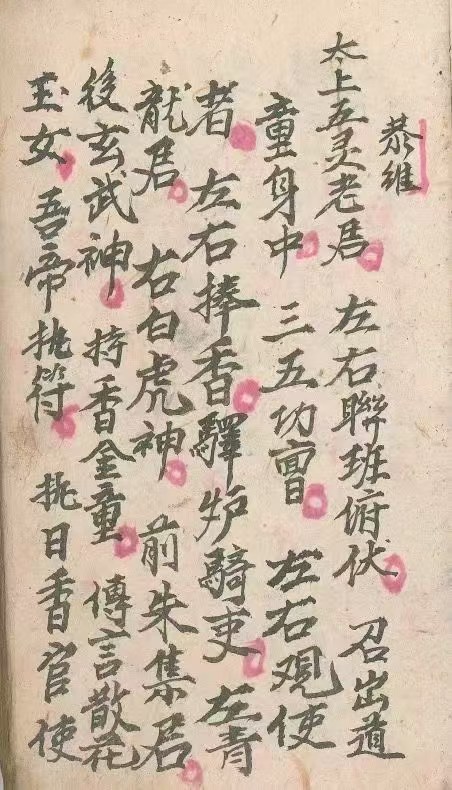 恭維
太上五灵老君 左右聯班俯伏 召出道
童身中 三五功曹 左右观使
者 左右捧香驛炉騎吏 左青
龍君 右白虎神 前朱集君
後玄武神 持香金童 傳言散花
玉女 吾帝執符 執日香官使